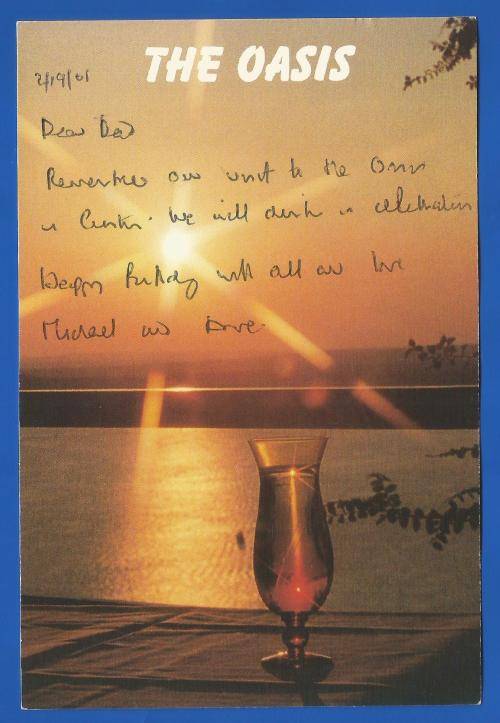 THE OASIS
2/19/01
Dear Dad
Remember our visit to the Oasis
in Austin. We will drink in celebration
Happy Birthday with all our love
Michael and Anne.